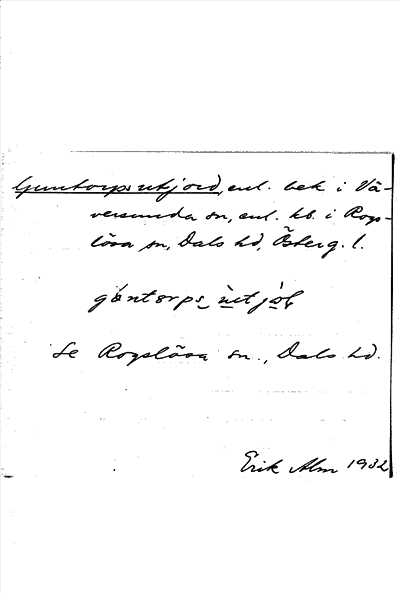 Guntorps utjord, enl. bek i Vä-
versunda sn, enl. kb. i Rogs-
lösa sn, Dals hd, Österg. l.
gòntorps ùtjoḷ
Se Rogslösa sn., Dals hd.
Erik Alm 1932